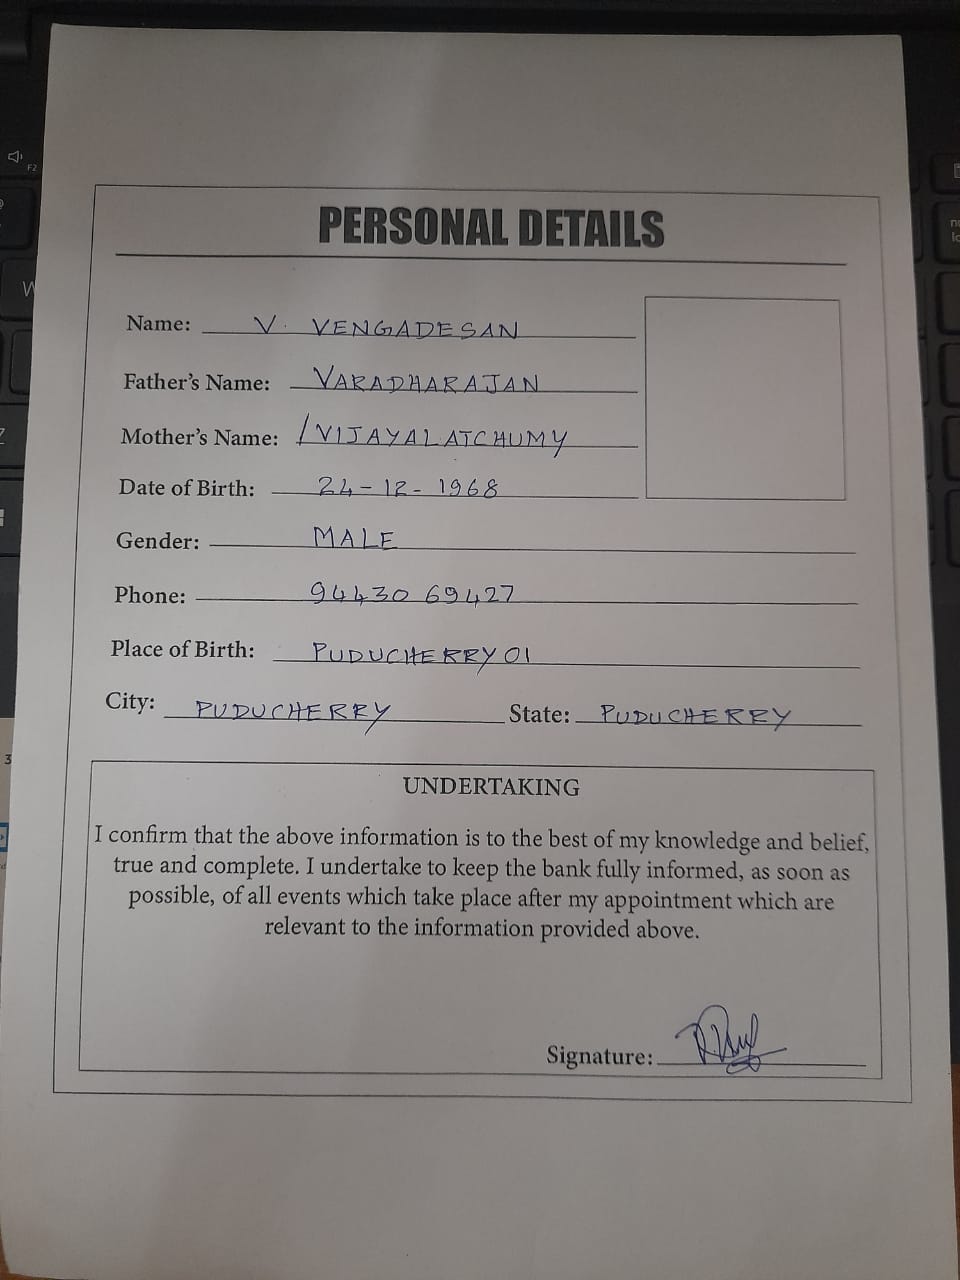 PERSONAL DETAILS
Name: V. VENGADESAN
Father's Name: VARADHARAJAN
Mother's Name: /VIJAYALATCHUMY
Date of Birth: 24-12-1968
Gender: MALE
Phone: 94430 69427
Place of Birth: PUDUCHERRY 01
City: PUDUCHERRY State: PUDUCHERRY
UNDERTAKING
I confirm that the above information is to the best of my knowledge and belief,
true and complete. I undertake to keep the bank fully informed, as soon as
possible, of all events which take place after my appointment which are
relevant to the information provided above.
Signature:
F2
W
Z
3